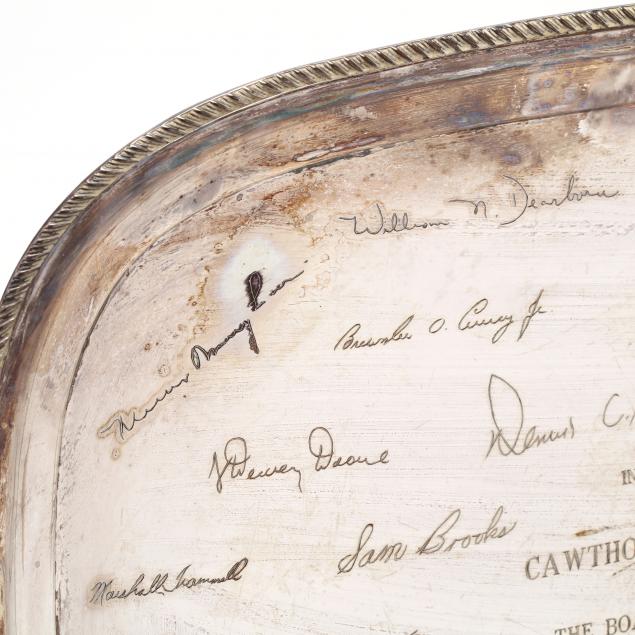 William N. Dearborn
Brownlee O. Currey Jr
Dennis C.
J Dewey Daane
IN
Sam Brooks
CAWTHO
Marshall Trammell
THE BOA